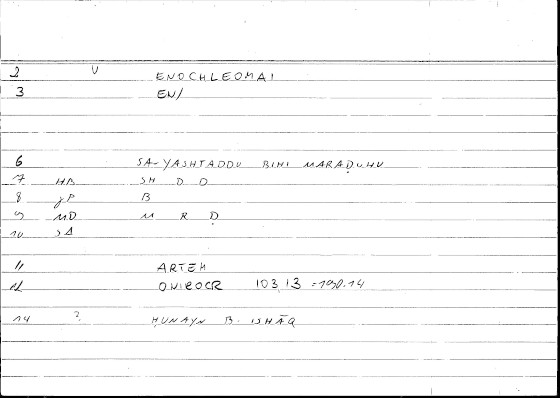 2 V ENOCHLEOMAI
3 EN/
6 SA-YASHTADDU BIHI MARAḌUHU
7 HB SH D D
8 JP B
9 MD M R Ḍ
10
11 ARTEM
12 ONIROCR 103,13 =190.14
14 ? ḤUNAYN B. ISHĀQ